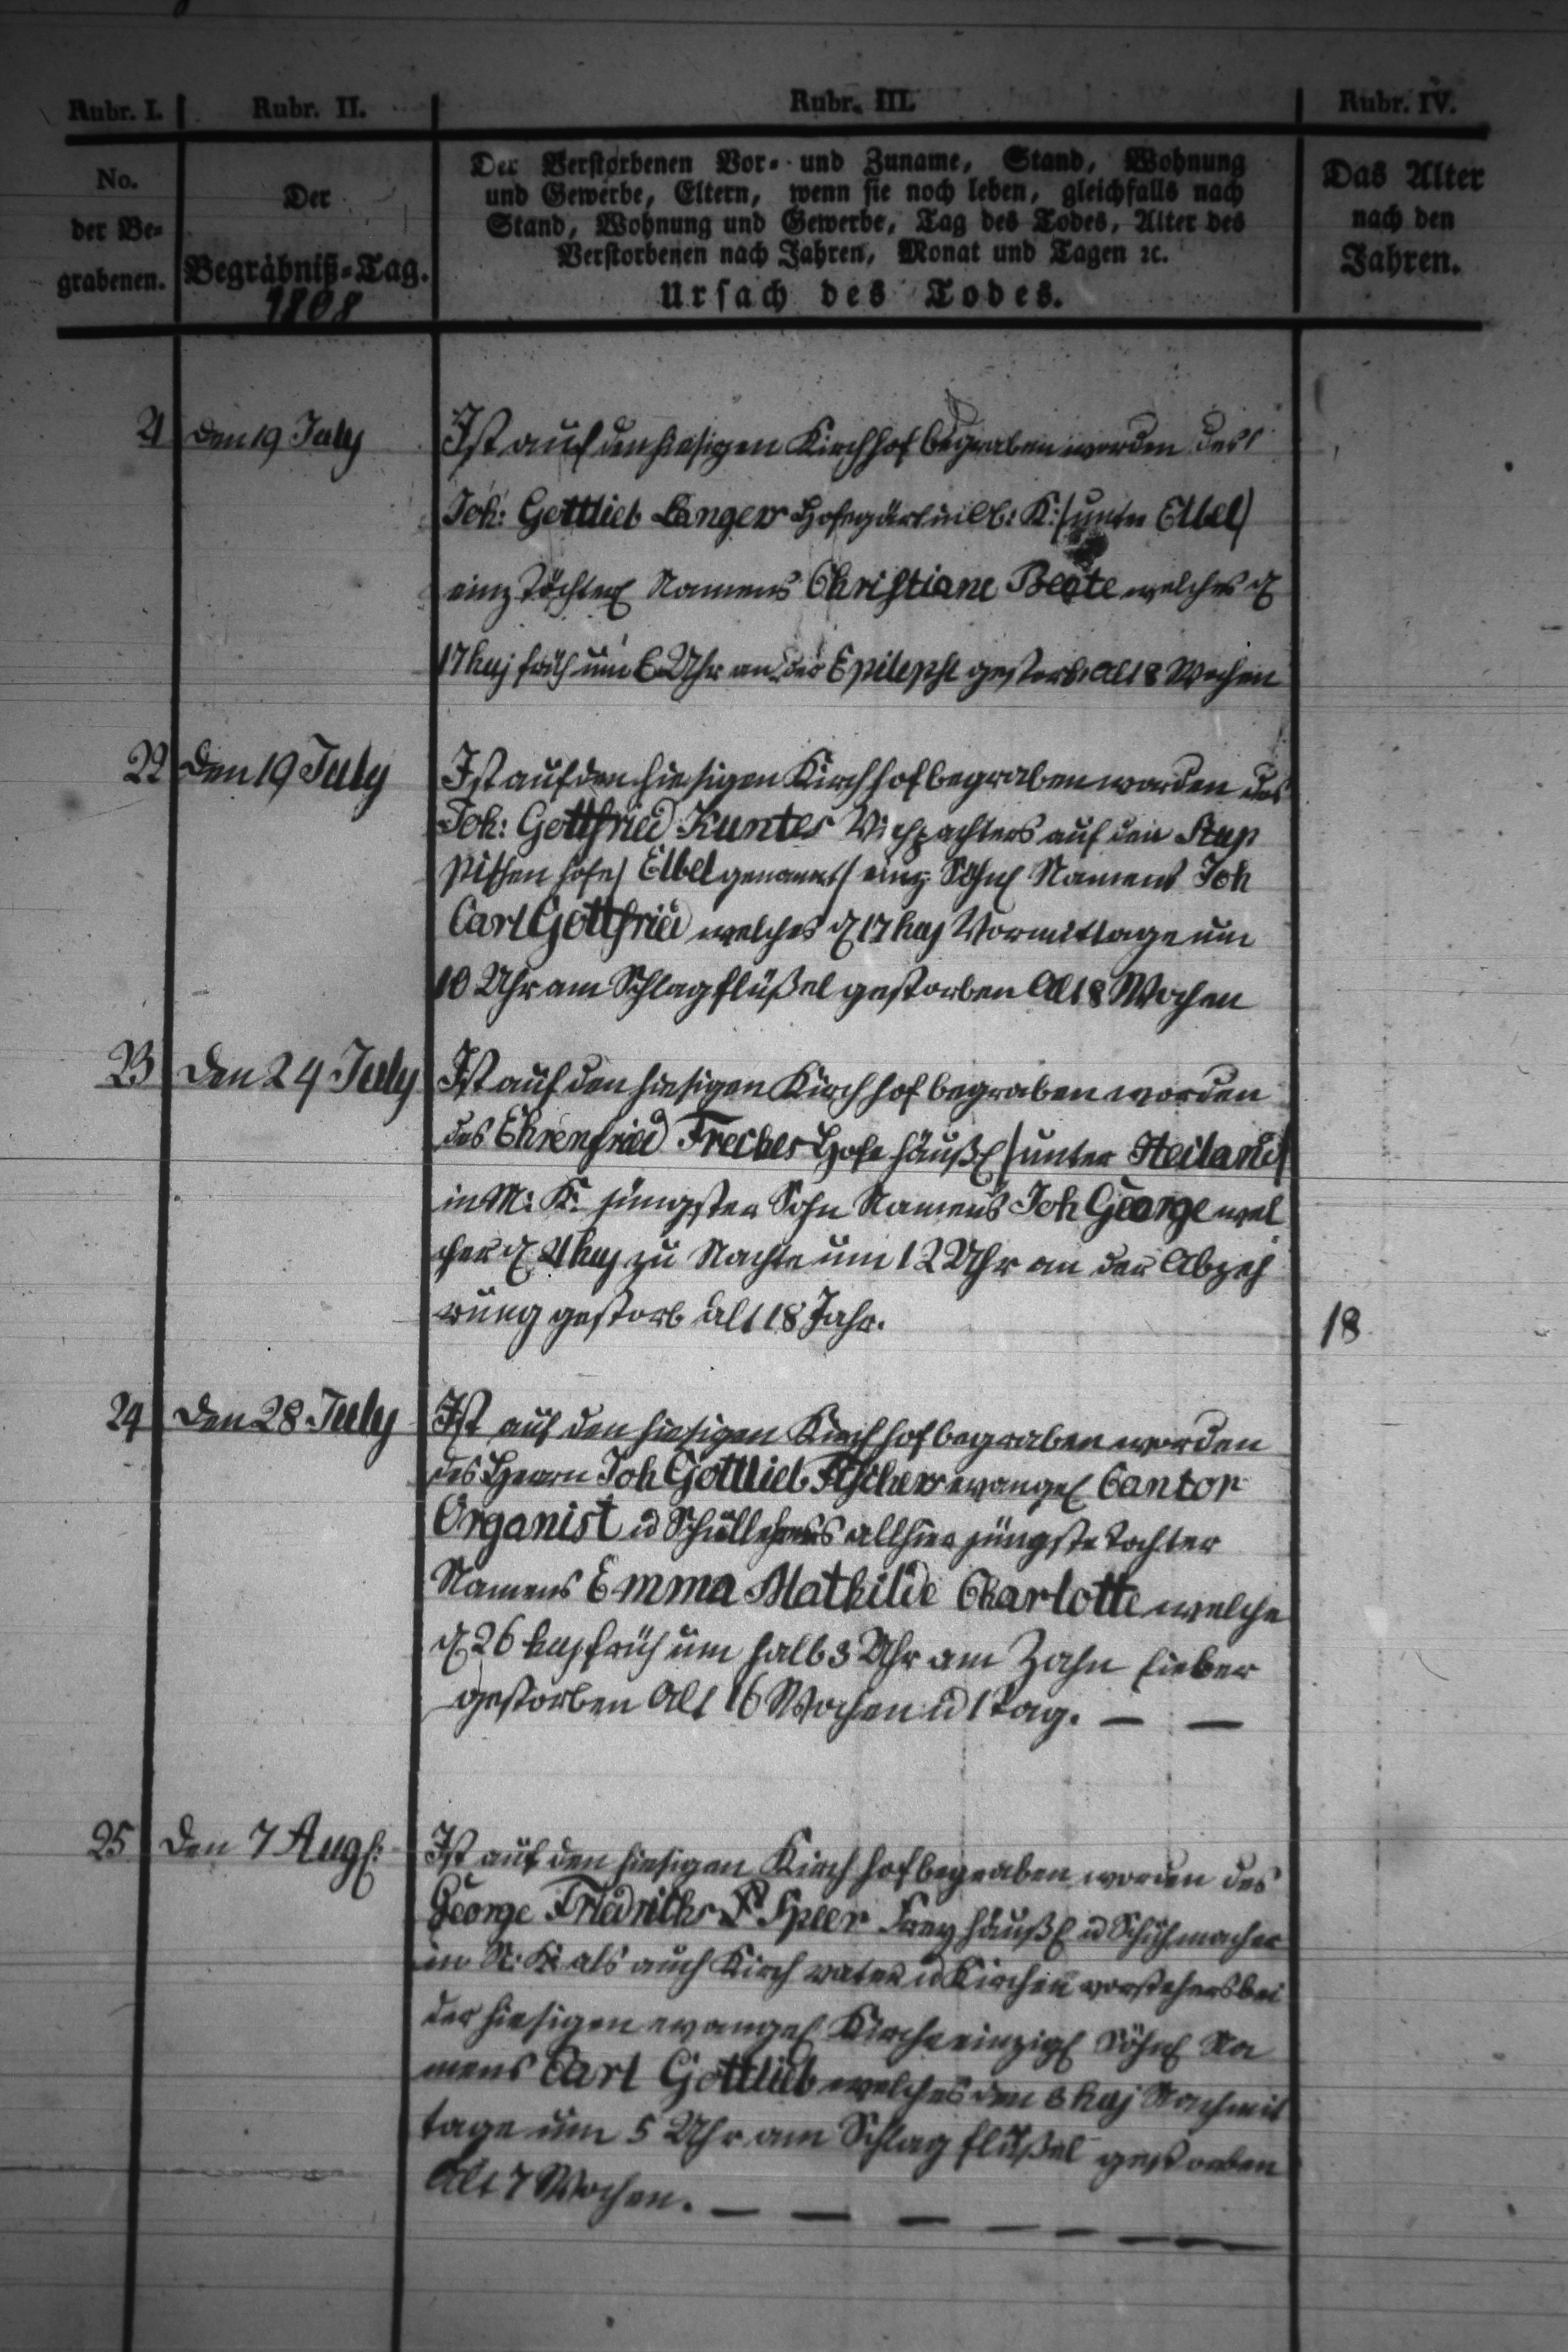 Rubr. I. Rubr. II. Rubr. III. Rubr. IV.
No.
der Be-
grabenen.
Der
Begräbniß-Tag.
1808
Der Verstorbenen Vor- und Zuname, Stand, Wohnung
und Gewerbe, Eltern, wenn sie noch leben, gleichfalls nach
Stand, Wohnung und Gewerbe, Tag des Todes, Alter des
Verstorbenen nach Jahren, Monat und Tagen ꝛc.
Ursach des Todes.
Das Alter
nach den
Jahren.
21 den 19 July Ist auf den hiesigen Kirchhof begraben worden des
Joh: Gottlieb Langer Hofegärtn in Ob: K: /unter Elbel/
einz Töchterl Namens Christiane Beate welches d
17 huj früh um 6 Uhr an der Epileps gestorb. alt 8 Wochen
22 den 19 July Ist auf den hiesigen Kirchhof begraben worden des
Joh: Gottfried Kuntes Viehpachters auf den
hofe/ Elbel genannt/ einz Söhnl Namens Joh
Carl Gottfried welches d 17 huj Vormittage um
10 Uhr am Schlagflüßel gestorben Alt 8 Wochen
23 den 24 July Ist auf den hiesigen Kirchhof begraben worden
des Ehrenfried Hofe häußl /unter Heiland/
in M: K: jüngster Sohn Namens Joh George wel
cher d 21 huj zu Nachte um 12 Uhr an der Abzeh
rung gestorb alt 18 Jahr. 18
24 den 28 July Ist auf den hiesigen Kirchhof begraben worden
des Herrn Joh Gottlieb Fischer evangel Cantor
Organist u Schullehrers allhier jüngste Tochter
Namens Emma Mathilde Charlotte welche
d 26 huj früh um halb 3 Uhr am Zahn fieber
gestorben Alt 16 Wochen u 1 Tag. — —
25 den 7 Augs: Ist auf den hiesigen Kirchhof begraben worden des
George Friedrichs Speer Frey häußl u Schuhmacher
in N: K: als auch Kirch vater u Kirchen vorstehers bei
der hiesigen evangel Kirche einzigs Söhnl Na
mens Carl Gottlieb welches den 3 huj Nachmit
tage um 5 Uhr am Schlag flüßel gestorben
Alt 7 Wochen. — — — — — — —